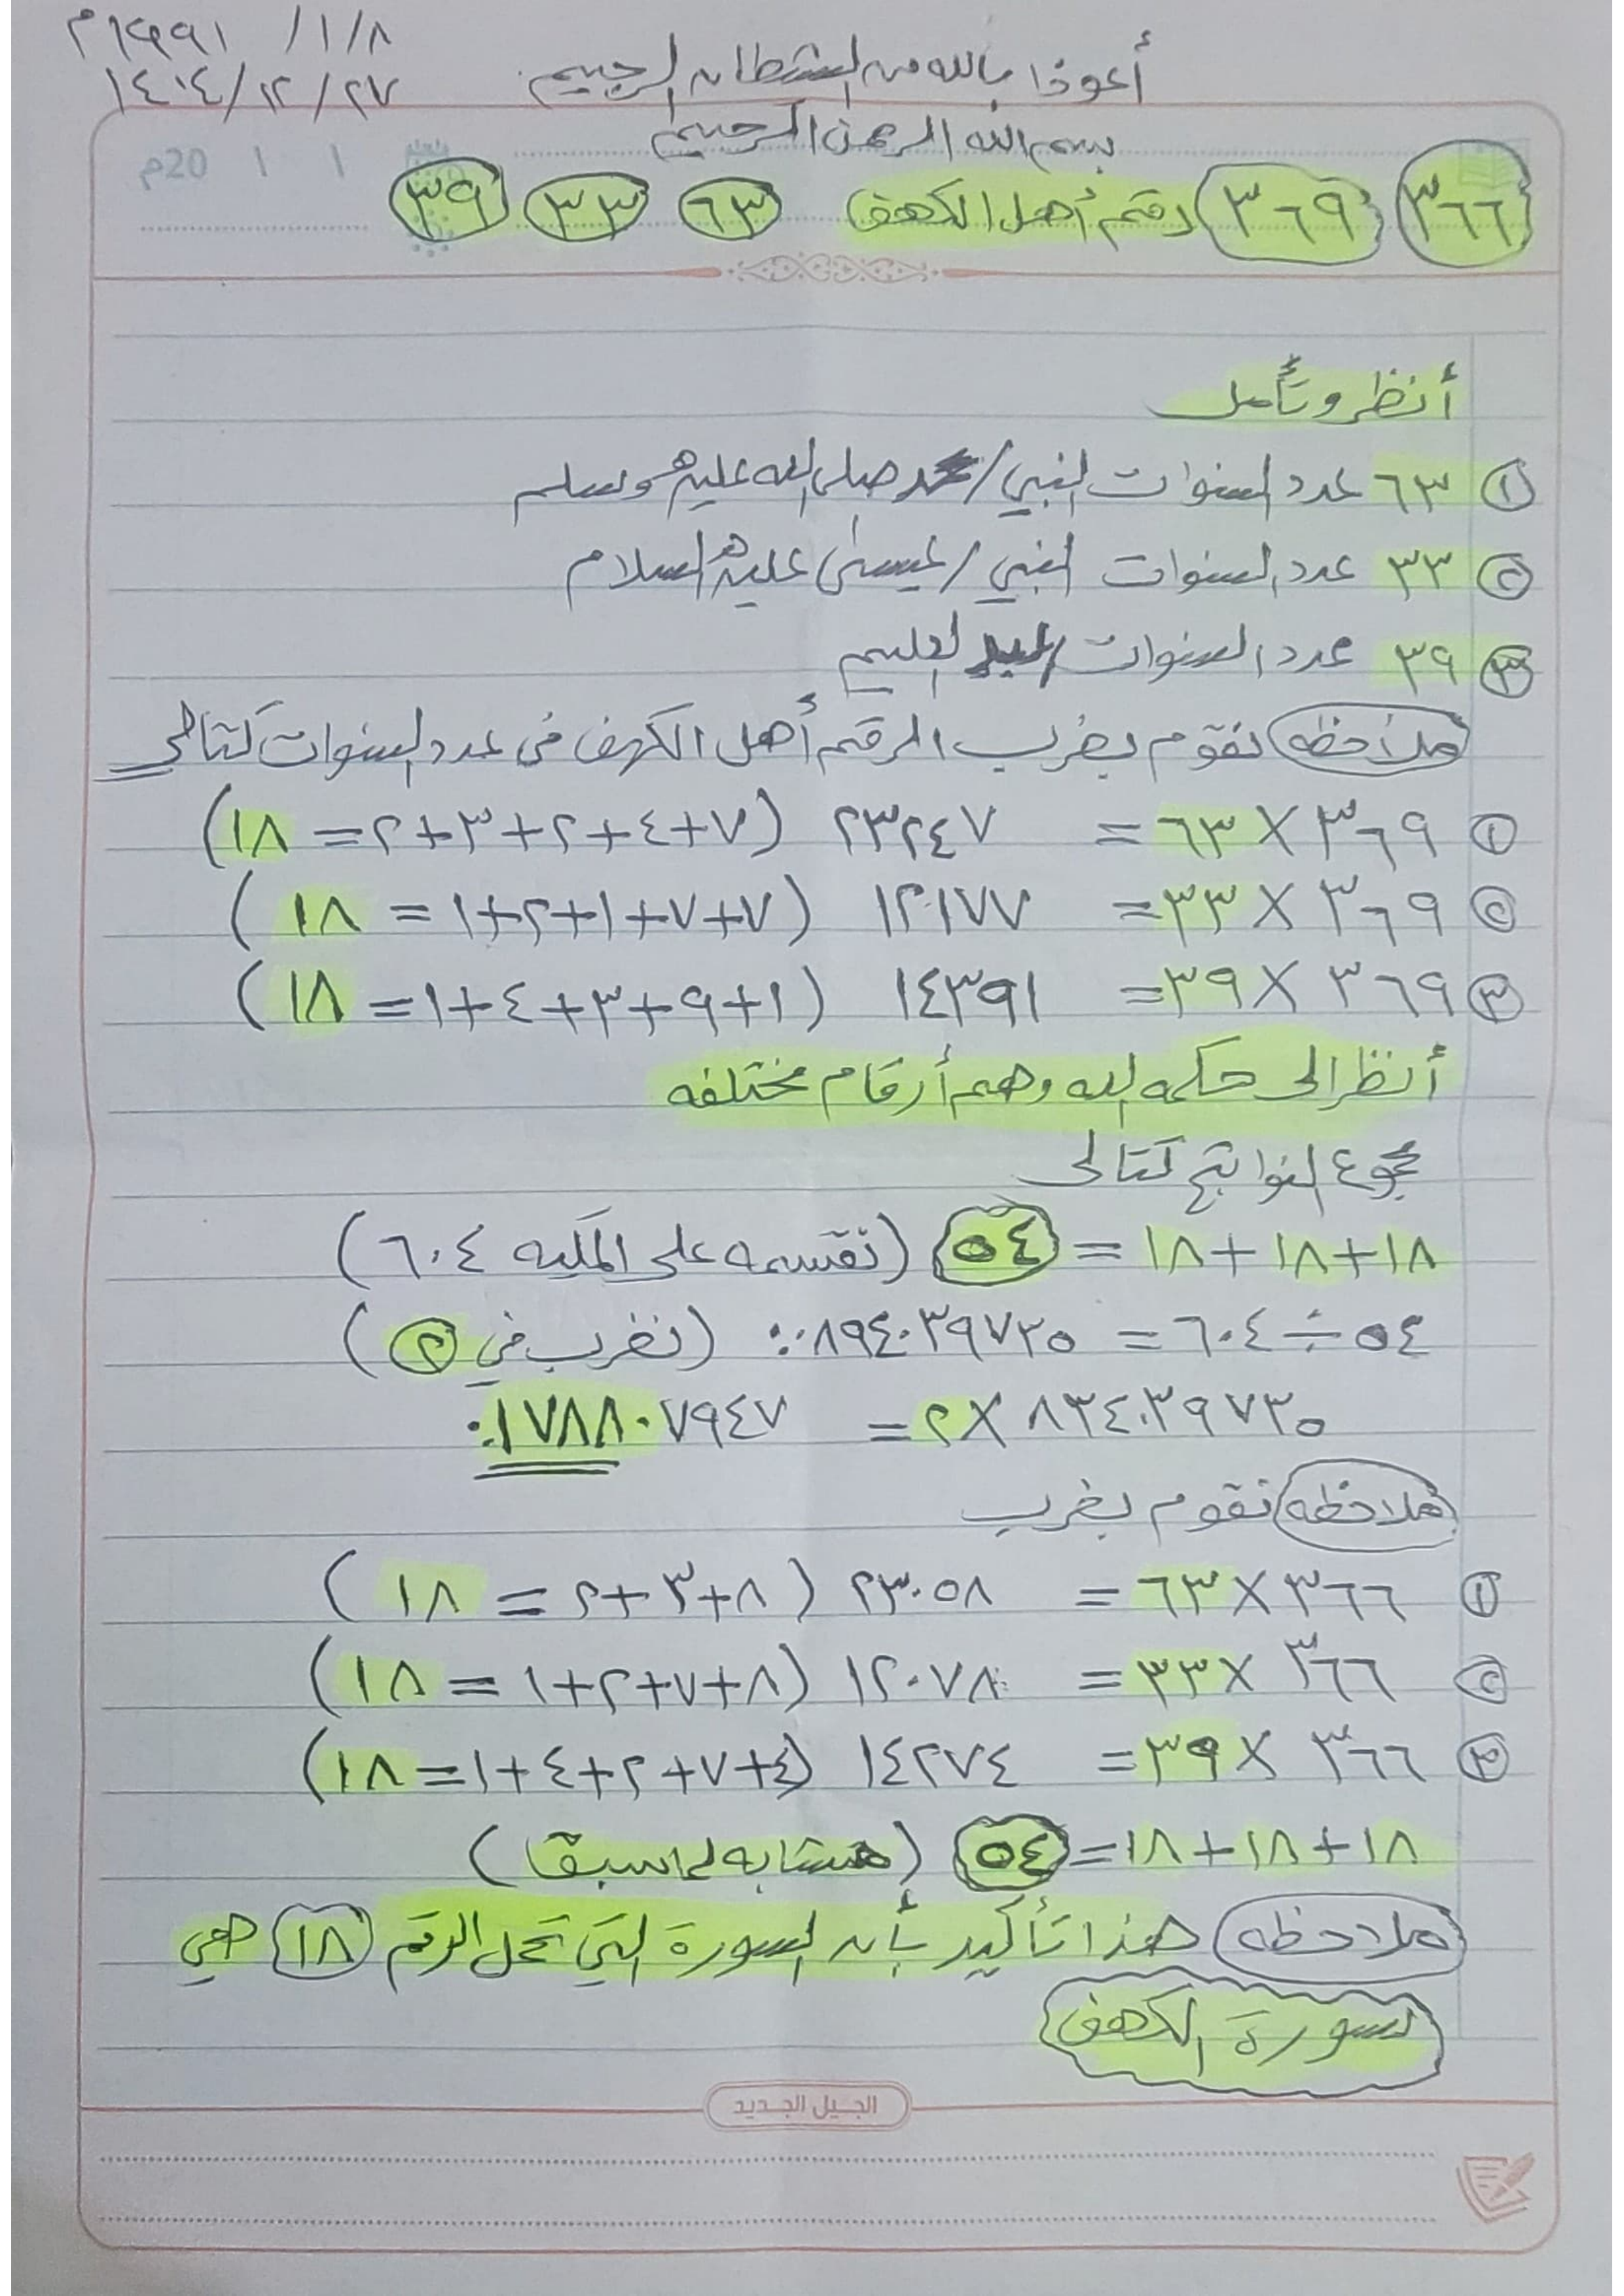 ١٩٩١ / ١ / ٨م
١٤١٤/١٢/٢٧
أعوذا بالله من الشطان الرجيم
بسم الله الرحمن الرحيم
١ ١ 20م
٣٦٦ ٣٦٩ رقم أهل الكهف ٦٣ ٣٣ ٣٩
أنظر وتأمل
١ ٦٣ عدد السنوات النبي / محمد صلى الله عليه وسلم
٢ ٣٣ عدد السنوات النبي / عيسى عليه السلام
٣ ٣٩ عدد السنوات /
ملاحظه نقوم بضرب الرقم أهل الكهف في عدد السنوات كتالي
١ ٣٦٩ × ٦٣ = ٢٣٢٤٧ (٧+٤+٢+٣+٢= ١٨)
٢ ٣٦٩ × ٣٣ = ١٢١٧٧ (٧+٧+١+٢+١ = ١٨)
٣ ٣٦٩ × ٣٩ = ١٤٣٩١ (١+٩+٣+٤+١= ١٨)
أنظر الى حكمه الله وهم أرقام مختلفه
مجموع النواتج كتالى
١٨+١٨+١٨ = ٥٤ (نقسمه على الملكيه ٦٠٤)
٥٤ ÷ ٦٠٤ = ٠.٠٨٩٤٠٣٩٧٣٥ (نضرب في ٢)
٨٣٤٠٣٩٧٣٥ × ٢ = ٠.١٧٨٨٠٧٩٤٧
ملاحظه نقوم بضرب
١ ٣٦٦ × ٦٣ = ٢٣٠٥٨ (٨+٣+٢ = ١٨)
٢ ٣٦٦ × ٣٣ = ١٢٠٧٨ (٨+٧+٢+١ = ١٨)
٣ ٣٦٦ × ٣٩ = ١٤٢٧٤ (٤+٧+٢+٤+١= ١٨)
١٨+١٨+١٨= ٥٤ (متشابه لما سبق)
ملاحظه هذا تأكيد بأن السورة التي تحمل الرقم ١٨ هي
سورة الكهف
الجيل الجديد